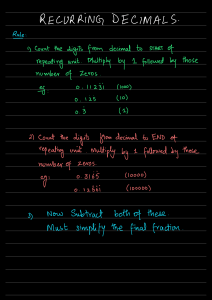 RECURRING DECIMALS.
Rule
1) Count the digits from decimal to START of
repeating unit Multiply by 1 followed by those
number of zeros
eg: 0.11231 (1000)
0.125 (10)
0.3 (1)
2) Count the digits from decimal to END of
repeating unit Multiply by 1 followed by these
number of zeros
eg: 0.3165 (10000)
(100000)
3) Now Subtract both of these
Must simplify the final fraction